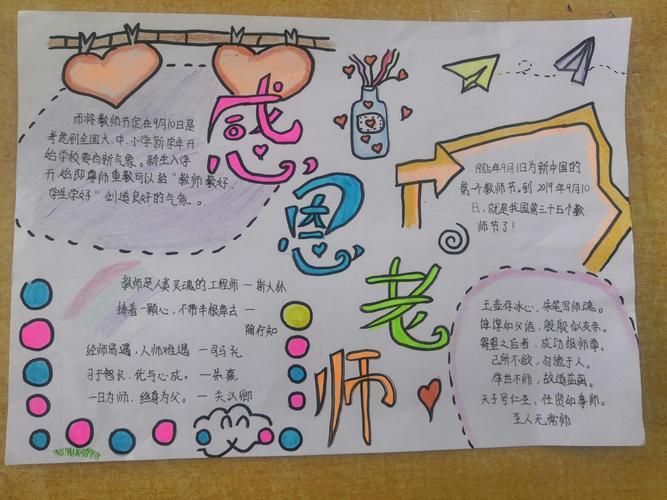 感恩老师
而将教师节定在9月10日是
考虑到全国大、中、小学新学年开
始学校要有新气象。新生入学
开始即尊师重教可以给“教师教好,
学生学好”创造良好的气氛。
1985年9月1日为新中国的
第一个教师节。到2019年9月10
日,就是我国第三十五个教
师节了!
教师是人类灵魂的工程师—斯大林
捧着一颗心,不带半根草去—
陶行知
经师易遇,人师难遇—司马光
习于智长,优与心成。—朱熹
一日为师,终身为父。—关汉卿
玉壶存冰心,朱笔写师魂。
谆谆如父语,殷殷似友亲。
成功报师尊。
己所不欲,勿施于人。
举世不师,故道益离。
天子号仁圣,任贤如事师。
至人无常师